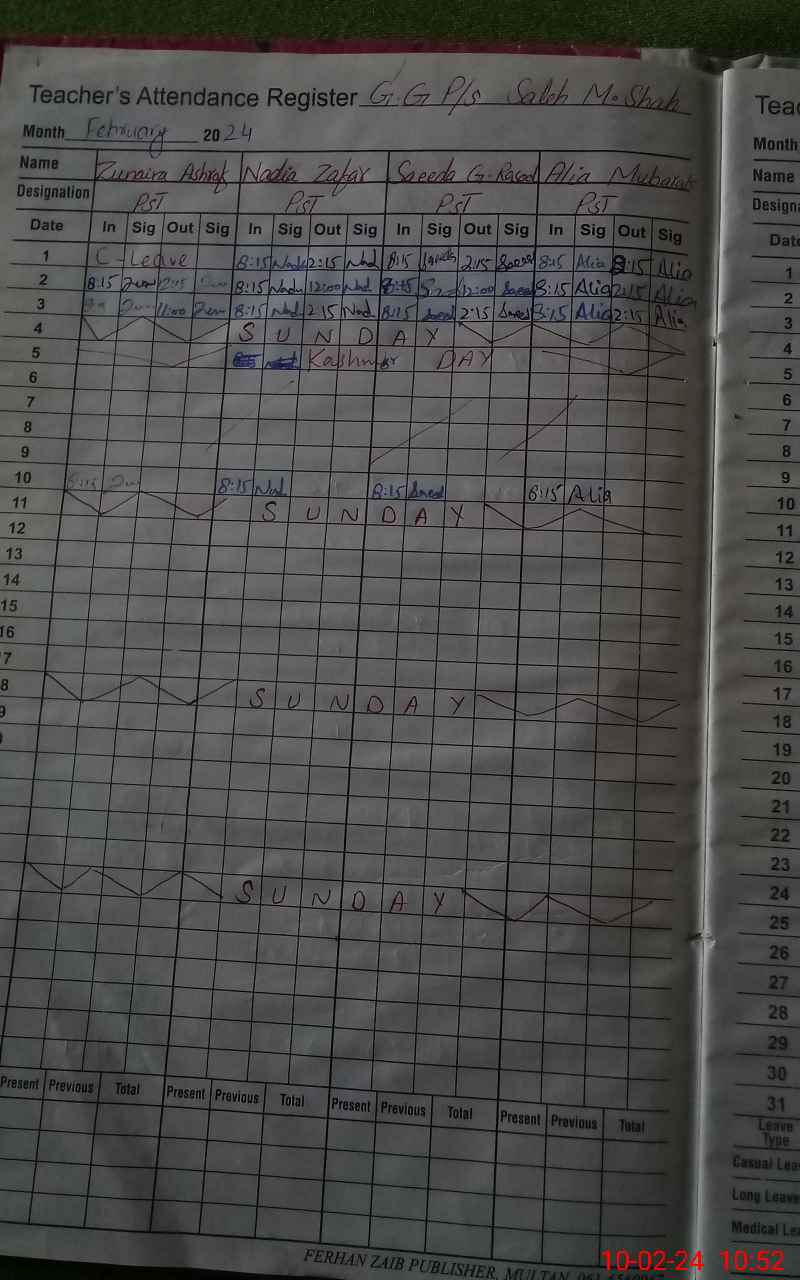 Teacher's Attendance Register G.G P/s Saleh M. Shah
Month February 2024
Name Zunaira Ashraf Nadia Zafar Saeeda G. Rasool Alia Mubarak
Designation PST PST PST PST
Date In Sig Out Sig In Sig Out Sig In Sig Out Sig In Sig Out Sig
1 C-Leave 8:15 Nad 2:15 Nad 8:15 2:15 Saeed 8:15 Alia 2:15 Alia
2 8:15 Zun 2:15 Zun 8:15 Nad 12:00 Nad 8:15 12:00 Saeed 8:15 Alia 2:15 Alia
3 Zun 11:00 Zun 8:15 Nad 2:15 Nad 8:15 Saeed 2:15 Saeed 8:15 Alia 2:15 Alia
4 SUNDAY
5 Kashmir DAY
6
7
8
9
10 8:15 Zun 8:15 Nad 8:15 Saeed 8:15 Alia
11 SUNDAY
12
13
14
15
16
7
8 SUNDAY
9
SUNDAY
Present Previous Total Present Previous Total Present Previous Total Present Previous Total
FERHAN ZAIB PUBLISHER, MULTAN.
Teac
Month
Name
Designa
Date
1
2
3
4
5
6
7
8
9
10
11
12
13
14
15
16
17
18
19
20
21
22
23
24
25
26
27
28
29
30
31
Leave
Type
Casual Lea
Long Leave
Medical Le
10-02-24 10:52